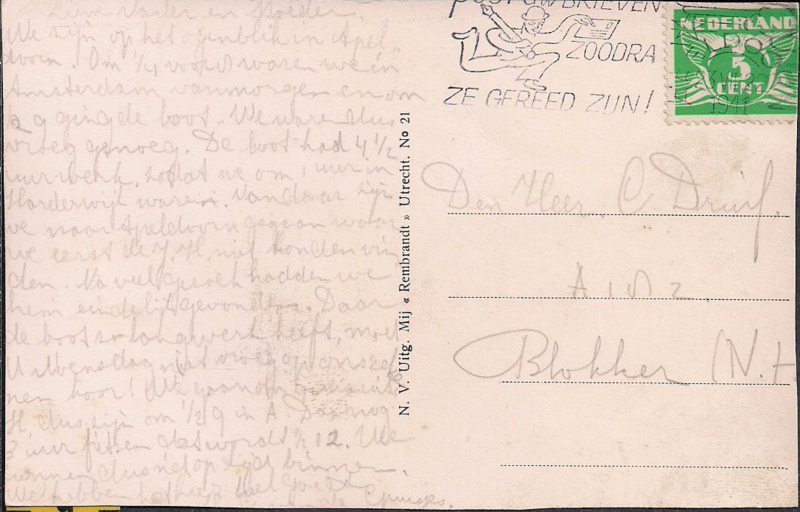 Lieve Vader en Moeder.
We zijn op het ogenblik in Apel-
doorn. Om 1/4 voor 8 waren we in
Amsterdam vanmorgen en om
1/2 9 ging de boot. We waren dus
vroeg genoeg. De boot had 4 1/2
uur werk, zodat we om 1 uur in
Harderwijk waren. Vandaar zijn
we naar Apeldoorn gegaan waar
we eerst de J.H. niet konden vin
den. Na veel hadden we
hem eindelijk gevonden. Daar
de boot zo lang werk heeft, moet
U Woensdag niet vroeg op ons
nen hoor! We gaan om
dus zijn om 1/2 9 in A. Dan nog
3 uur fietsen dat wordt 1/2 12. We
kunnen dus niet op tijd binnen.
We hebben het goed
de
N. V. Uitg. Mij « Rembrandt » Utrecht. No 21
POST UW BRIEVEN
ZOODRA
ZE GEREED ZIJN!
1941
NEDERLAND
3
CENT
Den Heer C. Druif.
A 182.
Blokker (N.H